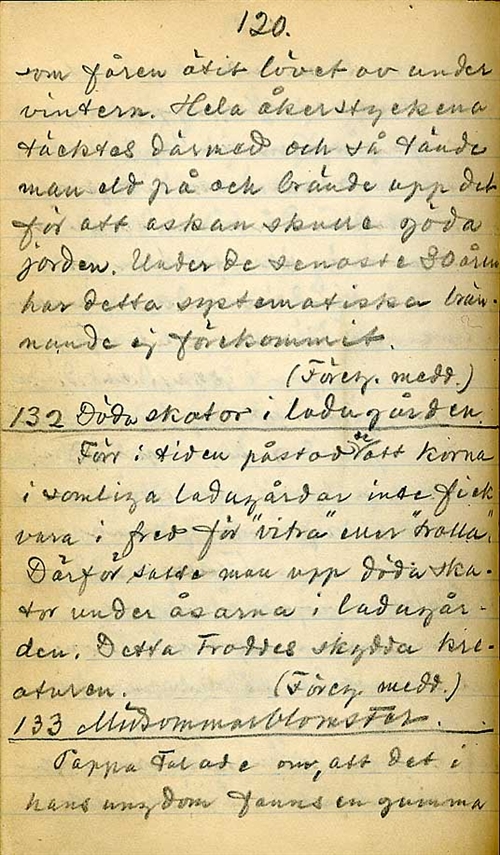 120.
som fåren ätit lövet av under
vintern. Hela åkerstyckena
täcktes därmed och så tände
man eld på och brände upp det
för att askan skulle göda
jorden. Under de senaste 30 åren
har detta systematiska brän-
nande ej förekommit.
(Föreg. medd.)
132 Döda skator i ladugården.
Förr i tiden påstods de att korna
i somliga ladugårdar inte fick
vara i fred för "vitra" eller "trolla".
Därför satte man upp döda ska-
tor under åsarna i ladugår-
den. Detta troddes skydda kre-
aturen. (Föreg. medd.)
133 Midsommarblomster.
Pappa talade om, att det i
hans ungdom fanns en gumma